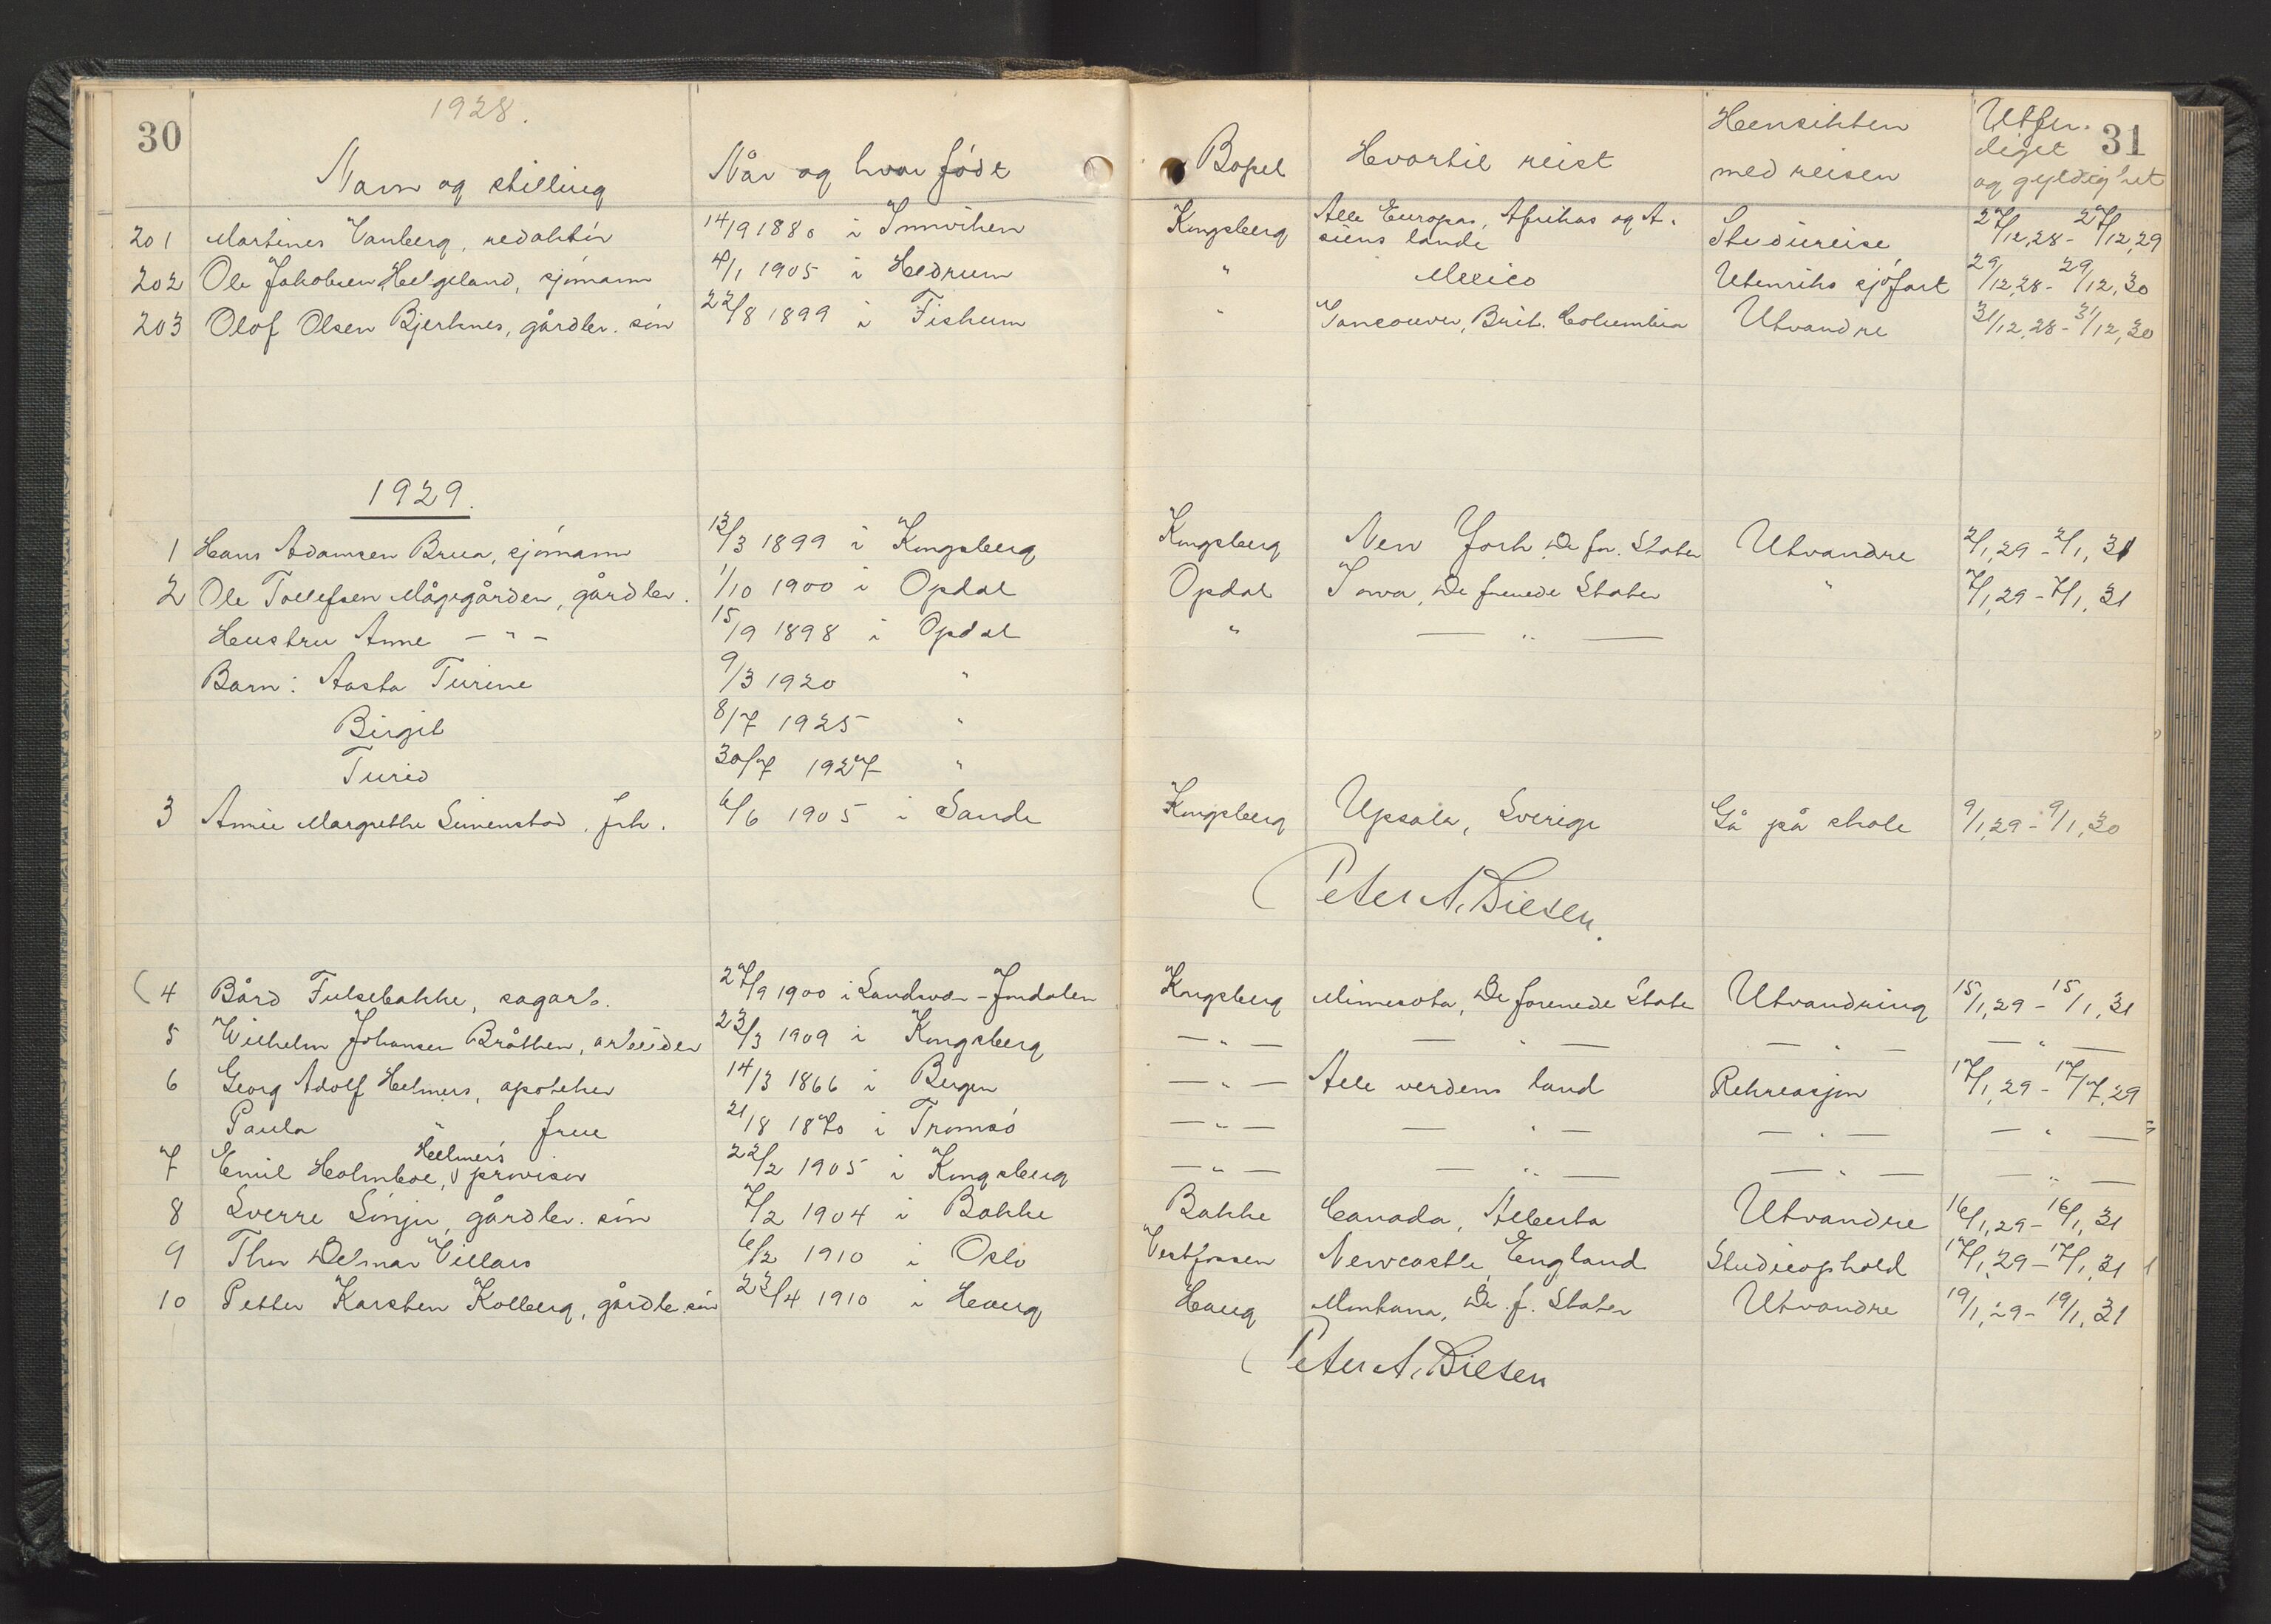 30
1928.
Navn og stilling
Når og hvor født
Bopel
Hvortil reist
Hensikten
med reisen
Utfer-
diget
og gyldighet
31
201 Martines Vanberg, redaktør 14/9 1880 i Innviken Kongsberg Alle Europas, Afrikas og A-
siens lande Studiereise 27/12,28 - 27/12,29
202 Ole Jakobsen Helgeland, sjømann 4/1 1905 i Hedrum " Mexico Utenriks sjøfart 29/12,28 - 29/12,30
203 Olof Olsen Bjerknes, gårdbr. søn 22/8 1899 i Fiskum " Vancouver, Brit. Columbia Utvandre 31/12,28 - 31/12,30
1929.
1 Hans Adamsen Brua, sjømann 13/3 1899 i Kongsberg Kongsberg New York De for. Stater Utvandre 2/1,29 - 2/1,31
2 Ole Tollefsen Mågegården, gårdbr. 1/10 1900 i Opdal Opdal Iowa, De forenede Stater " 7/1,29 - 7/1,31
Hustru Anne - " - 15/9 1898 i Opdal " — " —
Barn: Aasta Turine 9/3 1920 "
Birgit 8/7 1925 "
Turid 30/7 1927 "
3 Annie Margrethe Simenstad, frk. 6/6 1905 i Sande Kongsberg Upsala, Sverige Gå på skole 9/1,29 - 9/1,30
Peter A. Diesen.
4 Bård Fulsebakke, sagarb. 27/9 1900 i Sandsvær-Jondalen Kongsberg Minesota, De forenede State Utvandring 15/1,29 - 15/1,31
5 Wilhelm Johansen Bråthen, arbeider 23/3 1909 i Kongsberg — " — — " — — " — — " —
6 Georg Adolf Helmers, apoteker 14/3 1866 i Bergen — " — Alle verdens land Rekreasjon 17/1,29 - 17/7,29
Paula " frue 21/8 1870 i Tromsø — " — — " — — " — — " —
Helmers
7 Emil Holmboe, provisor 22/2 1905 i Kongsberg — " — — " — — " — — " —
8 Sverre Sønju, gårdbr. søn 7/2 1904 i Bakke Bakke Canada, Alberta Utvandre 16/1,29 - 16/1,31
9 Thor Delmar Villars 6/2 1910 i Oslo Vestfossen Newcastle, England Studieophold 17/1,29 - 17/1,31
10 Petter Karsten Kolberg, gårdbr. søn 23/4 1910 i Haug Haug Montana, De f. Stater Utvandre 19/1,29 - 19/1,31
Peter A. Diesen